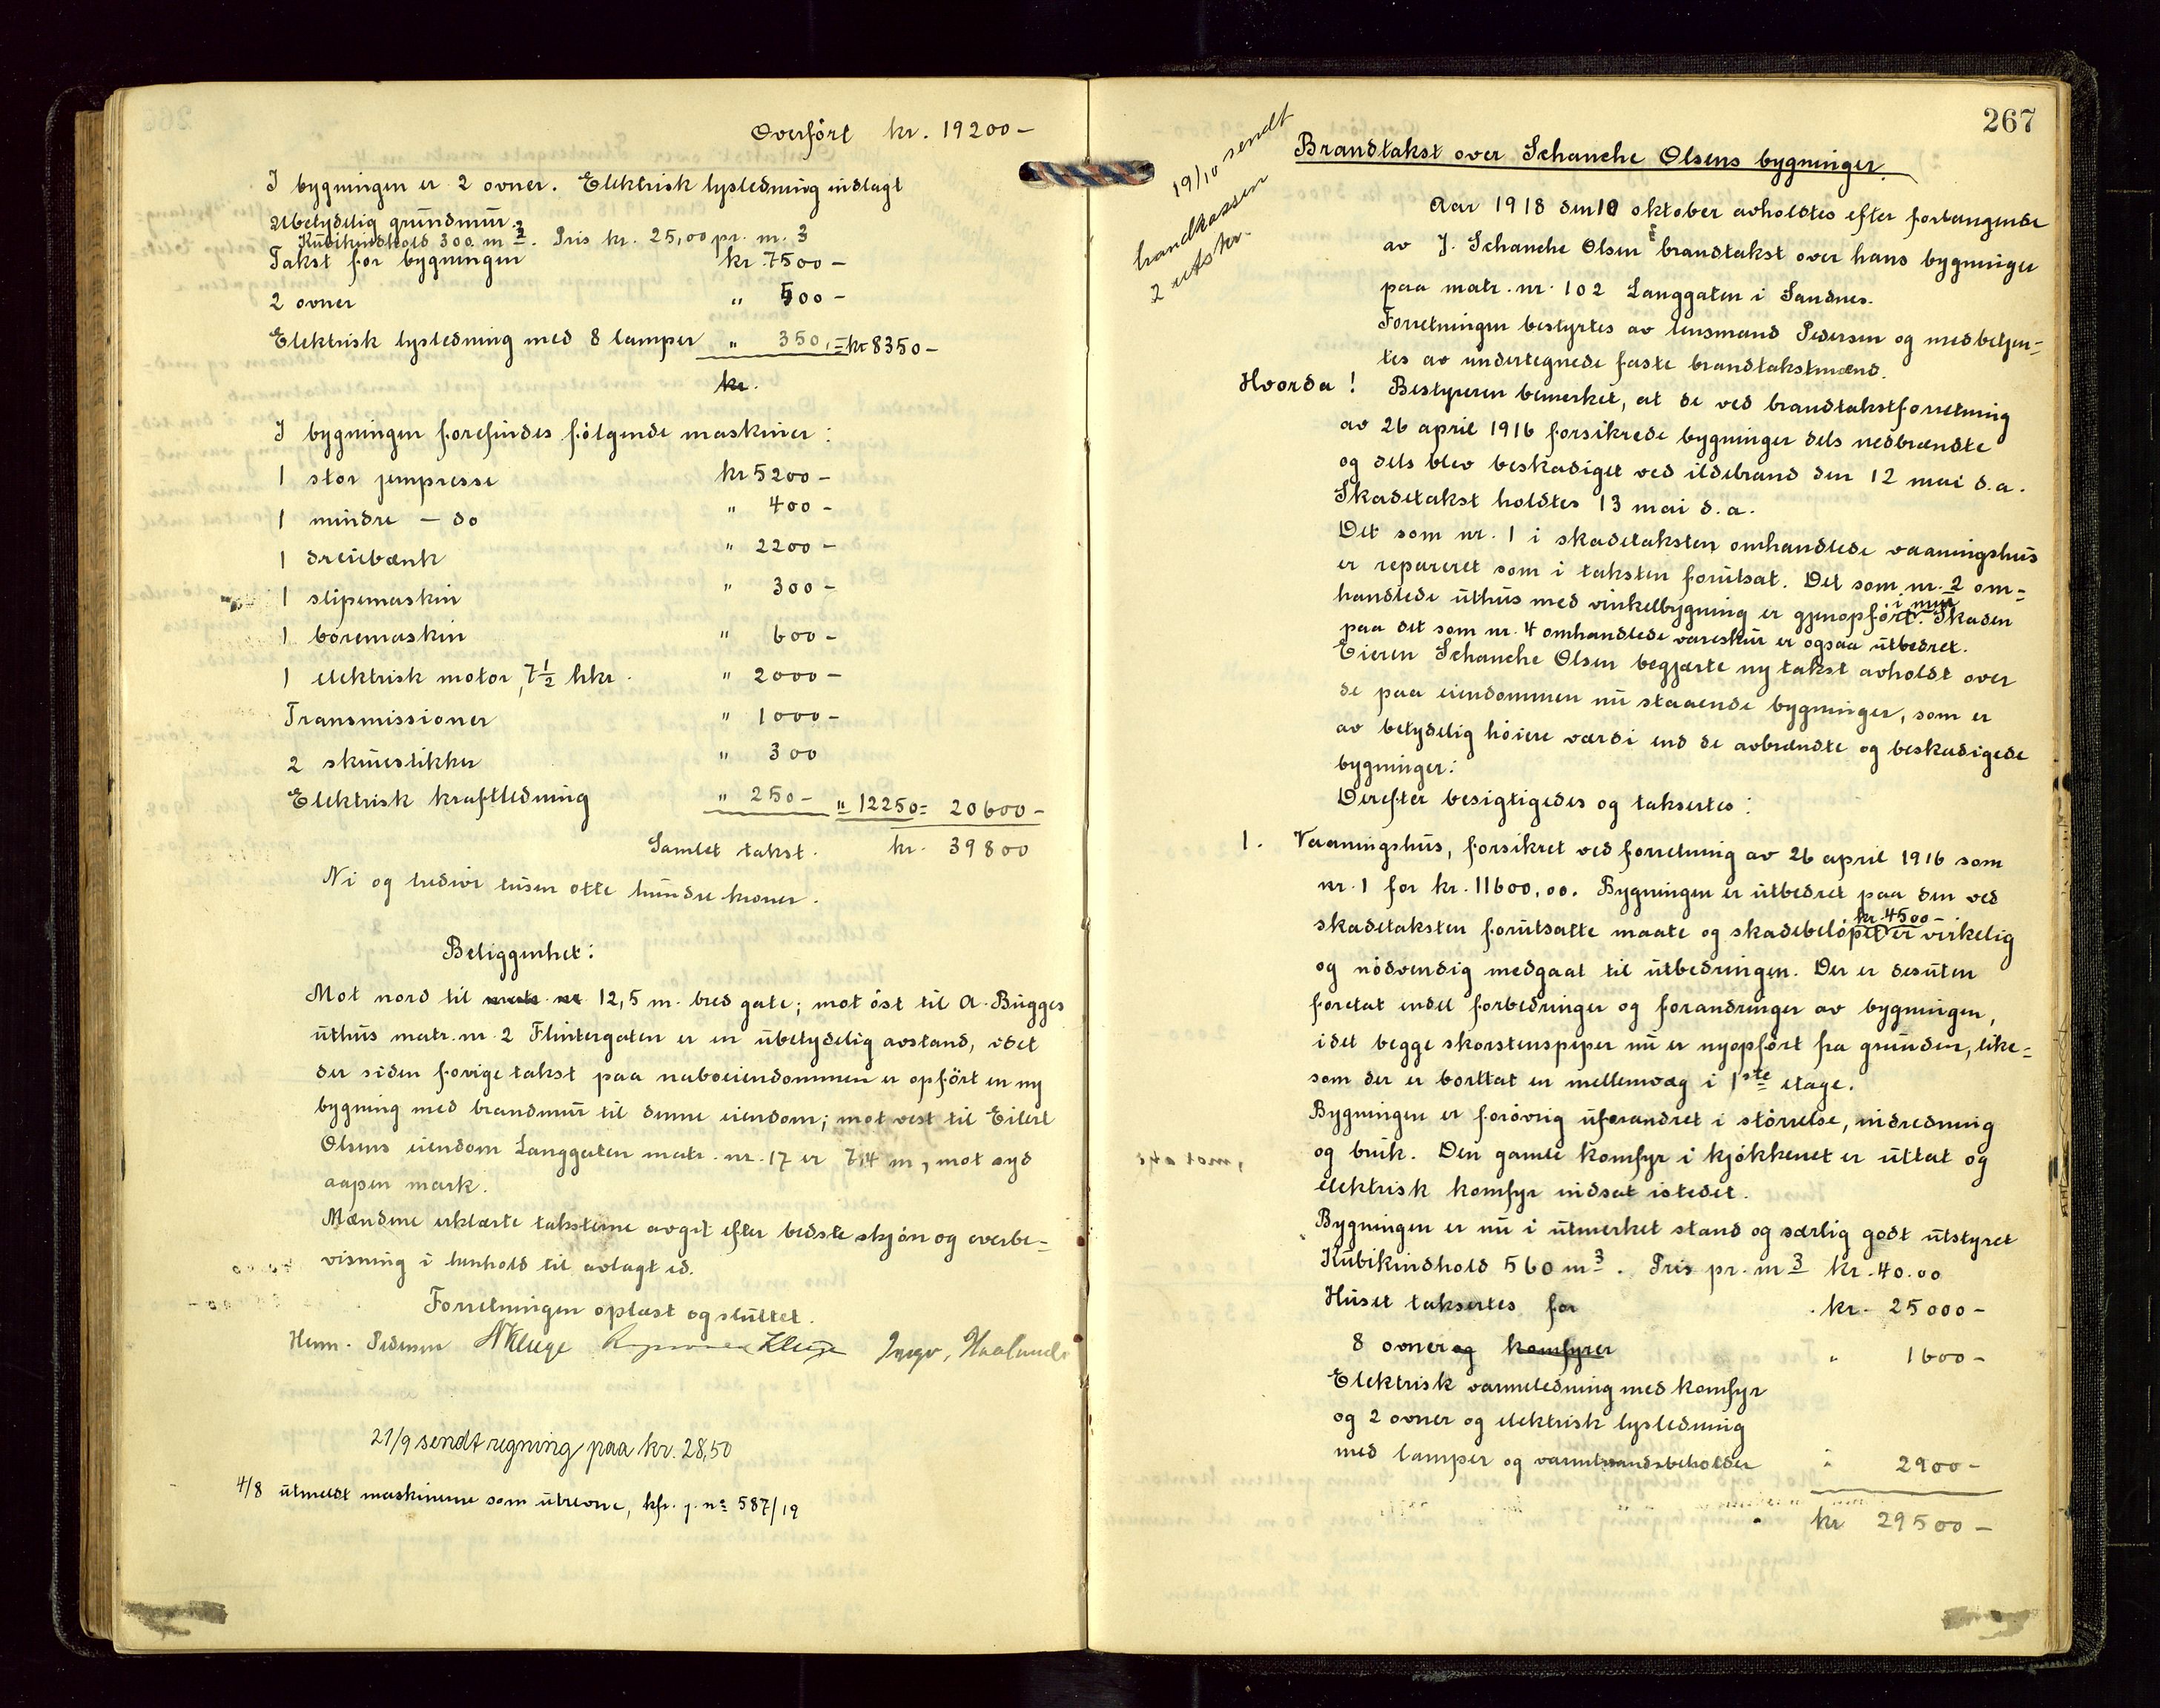 Overført kr. 19200 –
I bygningen er 2 ovner. Elektrisk lysledning indlagt
Ubetydelig grundmur.
Kubikindhold 300 m 3. Pris kr. 25,00 pr. m. 3
Takst for bygningen kr 7500 –
2 ovner " 500 –
Elektrisk lysledning med 8 lamper " 350,= kr 8350 –
kr.
I bygningen forefindes følgende maskiner:
1 stor jernpresse kr 5200 –
1 mindre – do " 400 –
1 dreiebænk " 2200 –
1 slipemaskin " 300 –
1 boremaskin " 600 –
1 elektrisk motor, 7½ hkr. " 2000 –
Transmissioner " 1000 –
2 skruestikker " 300
Elektrisk kraftledning " 250 – " 12250 = 20600 –
Samlet takst. kr. 39800
Ni og tredive tusen otte hundre kroner.
Beliggenhet:
Mot nord til matr. nr 12,5 m. bred gate; mot øst til A. Bugges
uthus matr. nr. 2 Flintergaten er en ubetydelig avstand, idet
der siden forrige takst paa naboeiendommen er opført en ny
bygning med brandmur til denne eiendom; mot vest til Eilert
Olsens eiendom Langgaten matr. nr. 17 er 7,4 m, mot syd
aapen mark.
Mændene erklærte taksterne avgit efter bedste skjøn og overbe-
visning i henhold til avlagt ed.
Forretningen oplæst og sluttet.
Henn. Pedersen N Kluge Kluge Ingv. Haaland
21/9 sendt regning paa kr. 28,50
4/8 utmeldt maskinerne som utrevne, kfr. j. nº 587/19
267
19/10 sendt
brandkassen
2 utskr.
Brandtakst over Schanche Olsens bygninger.
Aar 1918 den 10 oktober avholdtes efter forlangende
av J. Schanche Olsen brandtakst over hans bygninger
paa matr. nr. 102 Langgaten i Sandnes.
Forretningen bestyrtes av lensmand Pedersen og medbetjen-
tes av undertegnede faste brandtakstmænd.
Hvorda! Bestyreren bemerket, at de ved brandtakstforretning
av 26 april 1916 forsikrede bygninger dels nedbrændte
og dels blev beskadiget ved ildebrand den 12 mai d.a.
Skadetakst holdtes 13 mai d.a.
Det som nr. 1 i skadetaksten omhandlede vaaningshus
er reparert som i taksten forutsat. Det som nr. 2 om-
handlede uthus med vinkelbygning er gjenopført i mur. Skaden
paa det som nr. 4 omhandlede vareskur er ogsaa utbedret.
Eieren Schanche Olsen begjærte ny takst avholdt over
de paa eiendommen nu staaende bygninger, som er
av betydelig høiere værdi end de avbrændte og beskadigede
bygninger.
Derefter besigtigedes og taksertes:
1. Vaaningshus, forsikret ved forretning av 26 april 1916 som
nr. 1 for kr. 11600,00. Bygningen er utbedret paa den ved
skadetaksten forutsatte maate og skadebeløpet kr 4500 – er virkelig
og nødvendig medgaat til utbedringen. Der er desuten
foretat endel forbedringer og forandringer av bygningen,
idet begge skorstenspiper nu er nyopført fra grunden, like-
som der er borttat en mellemvæg i 1ste etage.
Bygningen er forøvrig uforandret i størrelse, indredning
og bruk. Den gamle komfyr i kjøkkenet er uttat og
elektrisk komfyr indsat istedet.
Bygningen er nu i utmerket stand og særlig godt utstyret
Kubikindhold 560 m 3. Pris pr. m 3 kr. 40.00
Huset taksertes for kr. 25000 –
8 ovner og komfyrer " 1600 –
Elektrisk varmeledning med komfyr
og 2 ovner og elektrisk lysledning
med lamper og varmtvandsbeholder " 2900 –
kr 29500 –